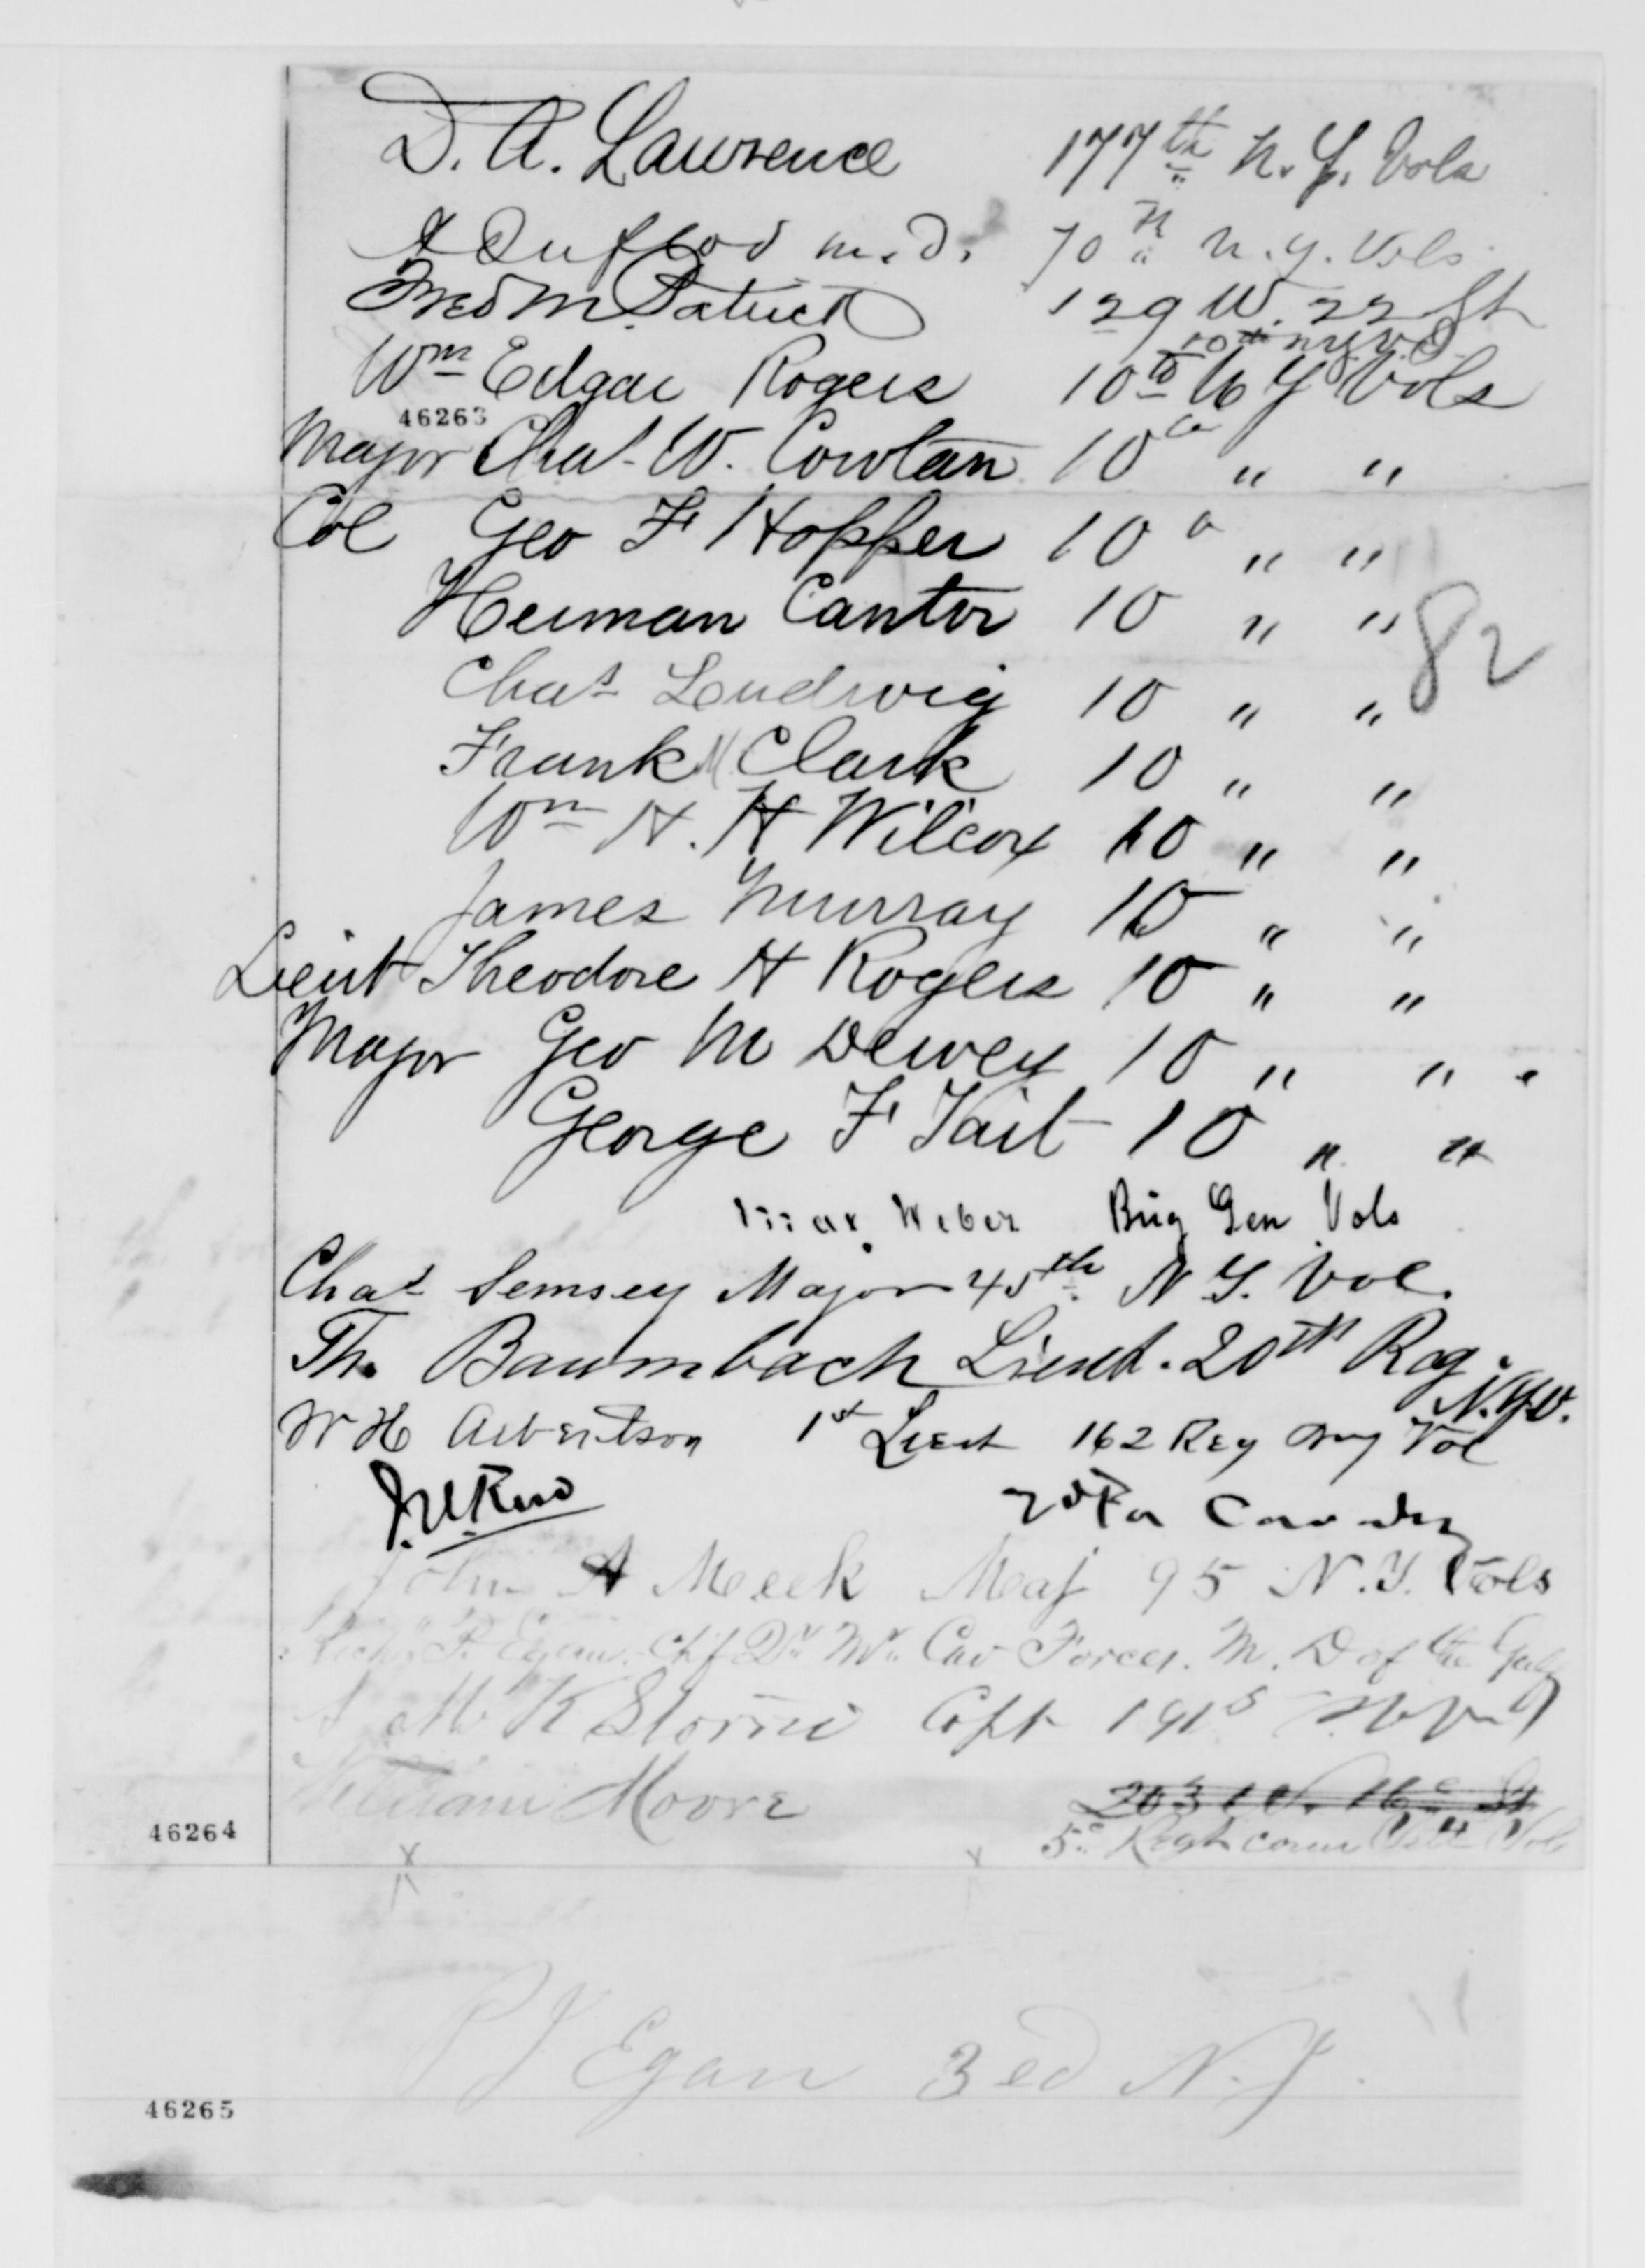 D. A. Lawrence 177th N. Y. Vols
M.D. 70th N.Y. Vols
Fred M. Patrick 129 W. 22 St
10th N.Y.V.
Wm Edgar Rogers 10th N Y Vols
46263
Major Chas. W. Cowtan 10th " "
Col Geo F Hopper 10 " "
Herman Cantor 10 " "
82
Chas Leudwig 10 " "
Frank M Clark 10 " "
Wm H. H Wilcox 10 " "
James Murray 10 " "
Lieut Theodore H Rogers 10 " "
Major Geo M Dewey 10 " "
George F Tait 10 " "
Max Weber Brig Gen Vols
Chas Semsey Major 45th N. Y. Vol.
Th. Baumbach Lieut. 20th Reg.
N.Y.V.
W H Albertson 1st Lieut 162 Reg N Y Vol
2d Pa Cavalry
John A Meek Maj 95 N.Y. Vols
P. Egan. Cav Forces. M. D of the Gulf
McK Storrie Capt 191
William Moore 203 W. 16 St
5th Regt Conn Vett Vols
46264
P J Egan 3ed N.J.
46265